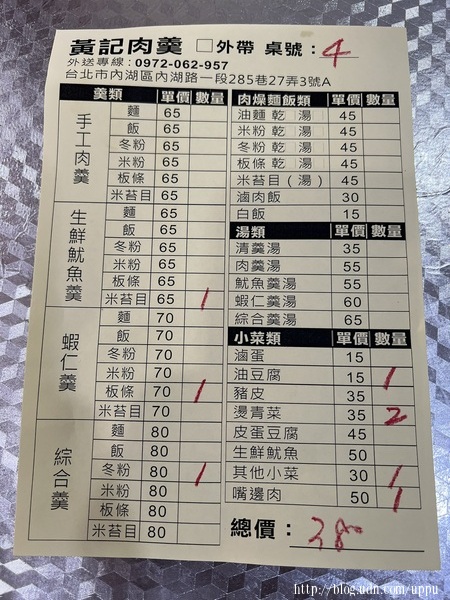 黃記肉羹 □外帶 桌號：4
外送專線：0972-062-957
台北市內湖區內湖路一段285巷27弄3號A
羹類 單價 數量
手工肉羹
麵 65
飯 65
冬粉 65
米粉 65
板條 65
米苔目 65
生鮮魷魚羹
麵 65
飯 65
冬粉 65
米粉 65
板條 65
米苔目 65 1
蝦仁羹
麵 70
飯 70
冬粉 70
米粉 70
板條 70 1
米苔目 70
綜合羹
麵 80
飯 80
冬粉 80 1
米粉 80
板條 80
米苔目 80
肉燥麵飯類 單價 數量
油麵 乾 湯 45
米粉 乾 湯 45
冬粉 乾 湯 45
板條 乾 湯 45
米苔目（湯） 45
滷肉飯 30
白飯 15
湯類 單價 數量
清羹湯 35
肉羹湯 55
魷魚羹湯 55
蝦仁羹湯 60
綜合羹湯 65
小菜類 單價 數量
滷蛋 15
油豆腐 15 1
豬皮 35
燙青菜 35 2
皮蛋豆腐 45
生鮮魷魚 50
其他小菜 30 1
嘴邊肉 50 1
總價：380
http://blog.udn.com/uppu